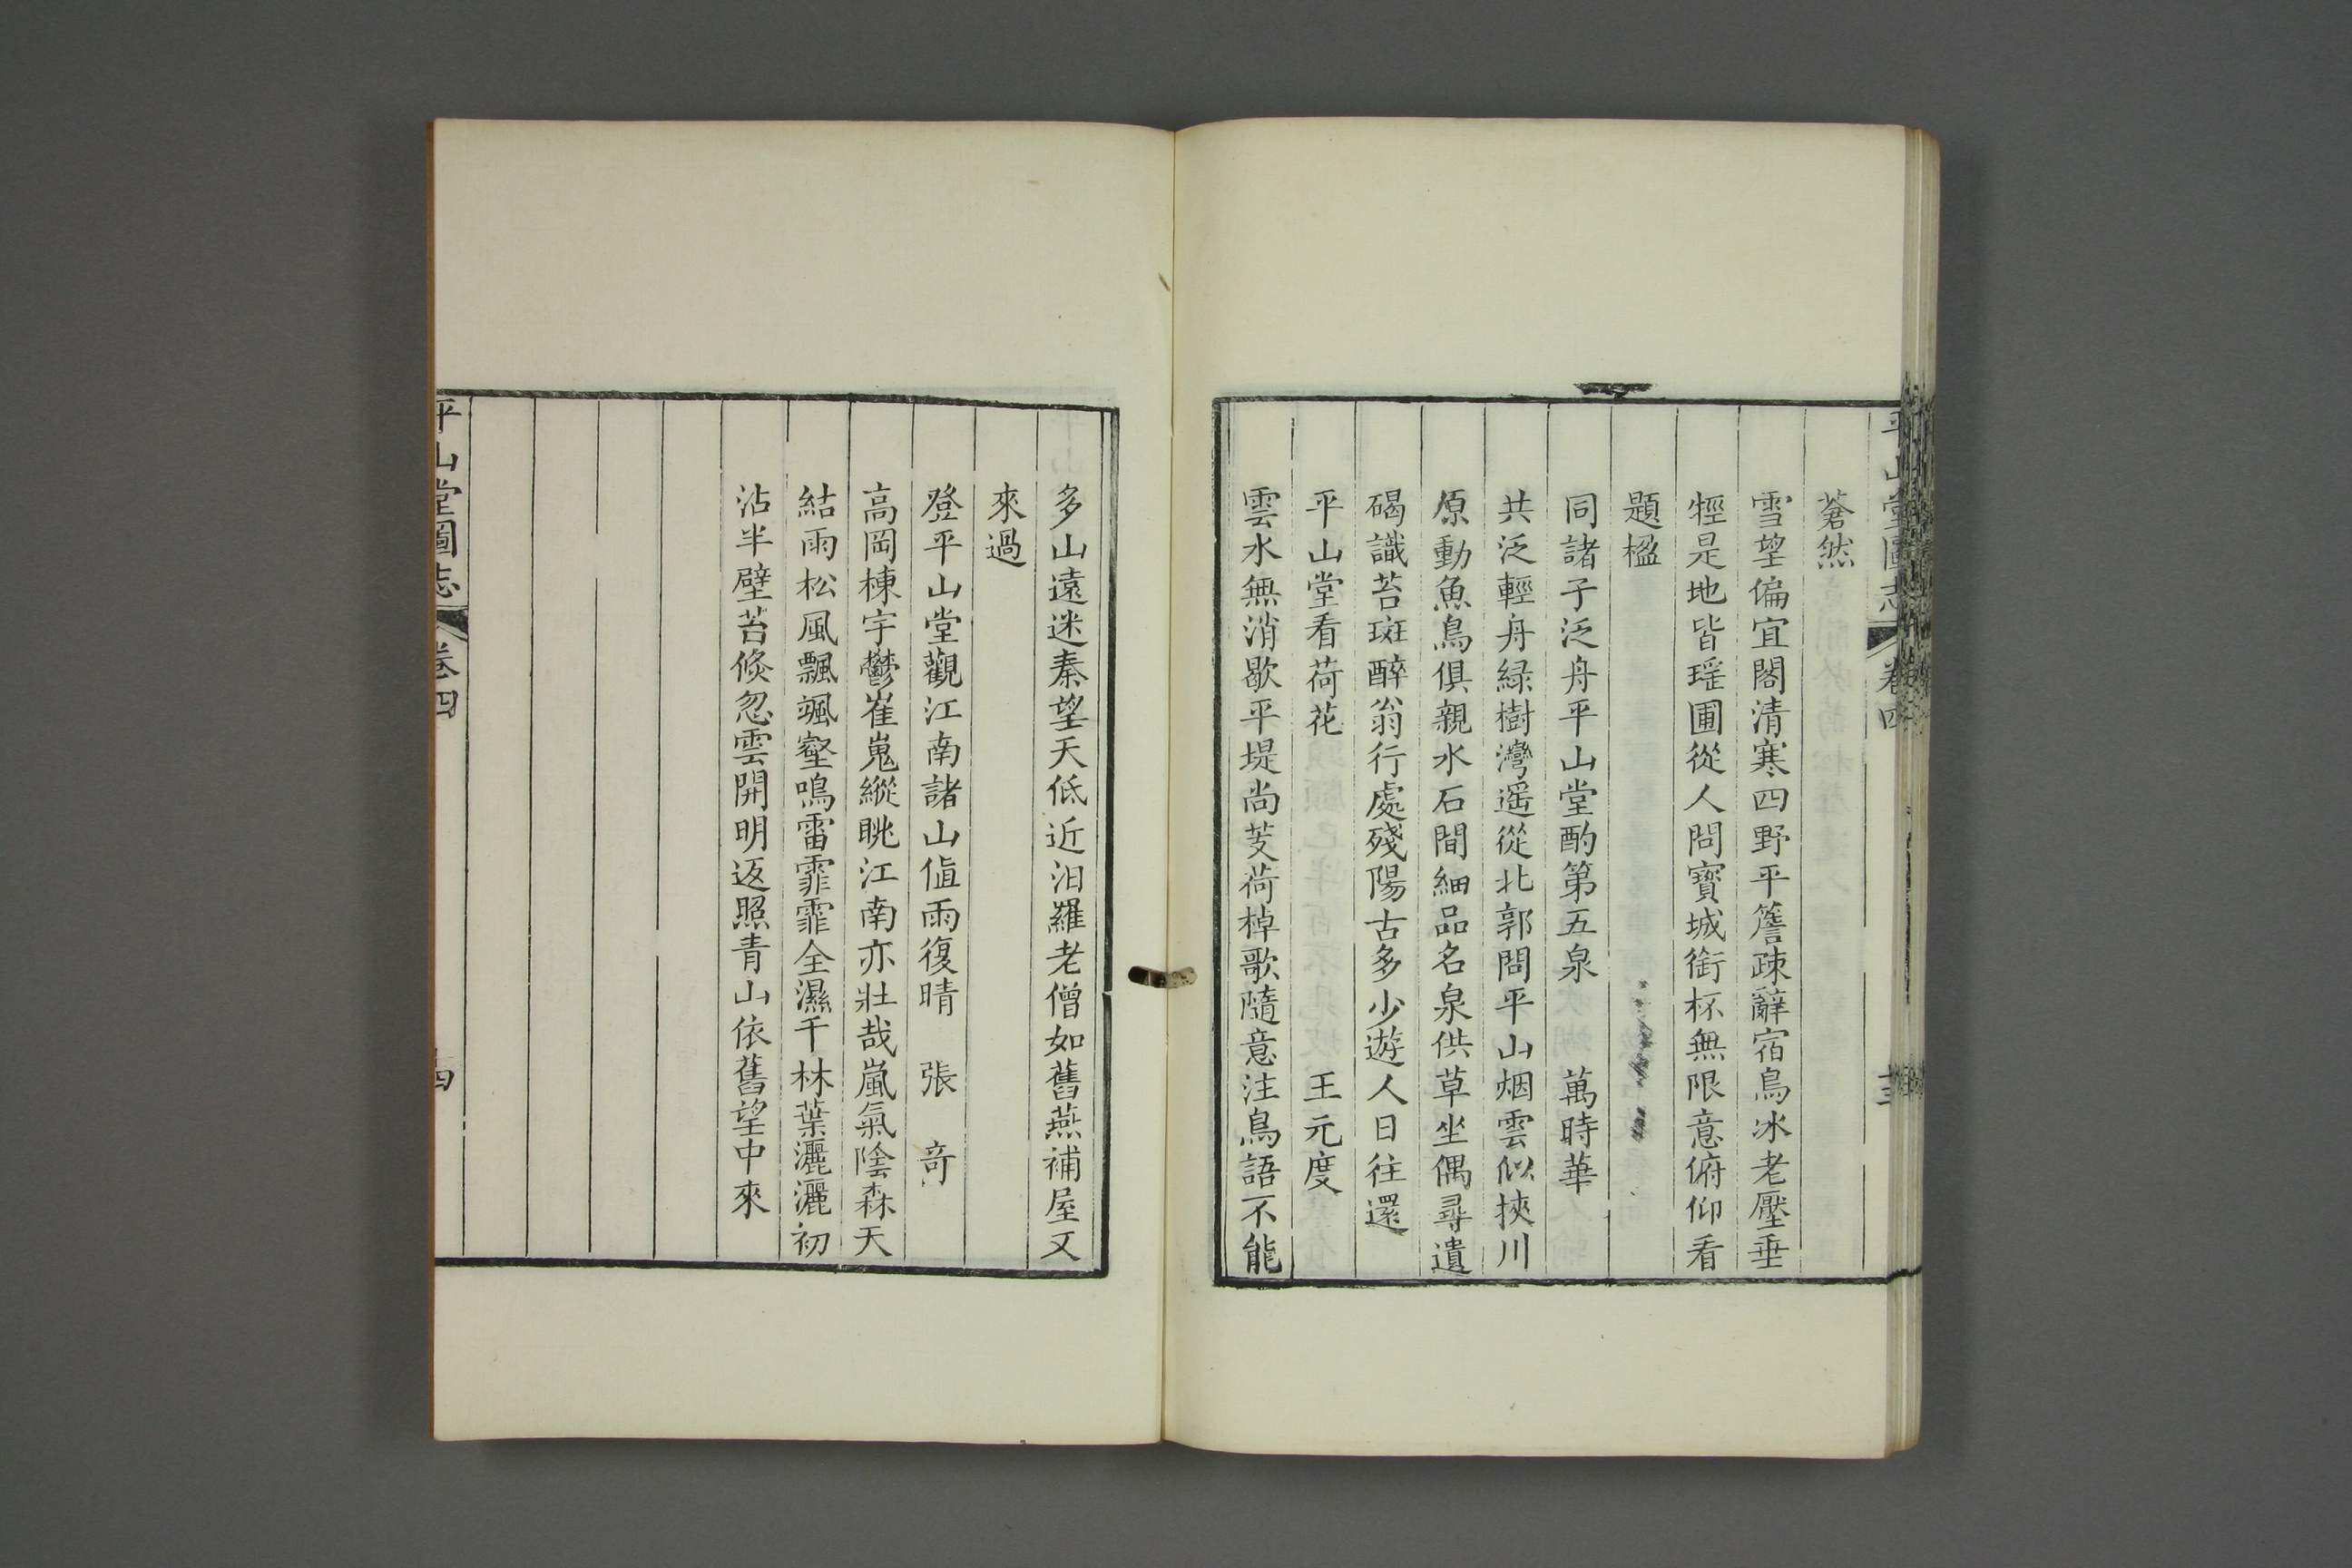 平山堂圖志 卷四 十三
蒼然
雪望偏宜閣清寒四野平簷疎辭宿鳥冰老壓垂
檉是地皆瑤圃從人問寶城銜杯無限意俯仰看
題楹
同諸子泛舟平山堂酌第五泉 萬時華
共泛輕舟綠樹灣遥從北郭問平山烟雲似挾川
原動魚鳥俱親水石間細品名泉供草坐偶尋遺
碣識苔斑醉翁行處殘陽古多少遊人日往還
平山堂看荷花 王元度
雲水無消歇平堤尚芰荷棹歌隨意注鳥語不能
多山遠迷秦望天低近汨羅老僧如舊燕補屋又
來過
登平山堂觀江南諸山值雨復晴 張奇
高岡棟宇鬱崔嵬縱眺江南亦壯哉嵐氣陰森天
結雨松風飄颯壑鳴雷霏霏全濕千林葉灑灑初
沾半壁苔倏忽雲開明返照青山依舊望中來
平山堂圖志 卷四 十四